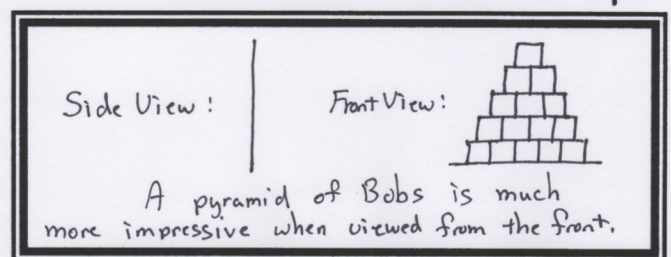 Side View:
Front View:
A pyramid of Bobs is much
more impressive when viewed from the front.